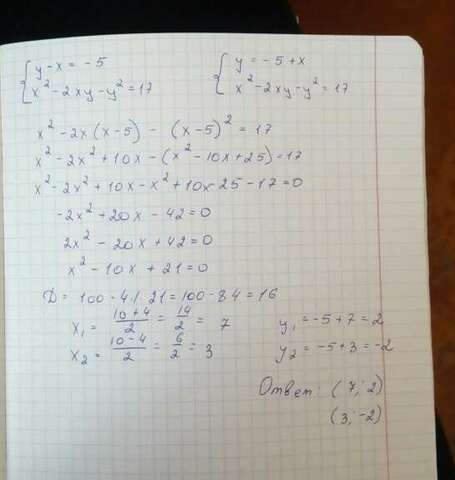 { y - x = -5    { y = -5 + x
x² - 2xy - y² = 17    x² - 2xy - y² = 17
x² - 2x(x-5) - (x-5)² = 17
x² - 2x² + 10x - (x² - 10x + 25) = 17
x² - 2x² + 10x - x² + 10x - 25 - 17 = 0
-2x² + 20x - 42 = 0
2x² - 20x + 42 = 0
x² - 10x + 21 = 0
D = 100 - 4·1·21 = 100 - 84 = 16
x₁ = (10+4)/2 = 14/2 = 7    y₁ = -5 + 7 = 2
x₂ = (10-4)/2 = 6/2 = 3    y₂ = -5 + 3 = -2
Ответ: (7; 2)
(3; -2)